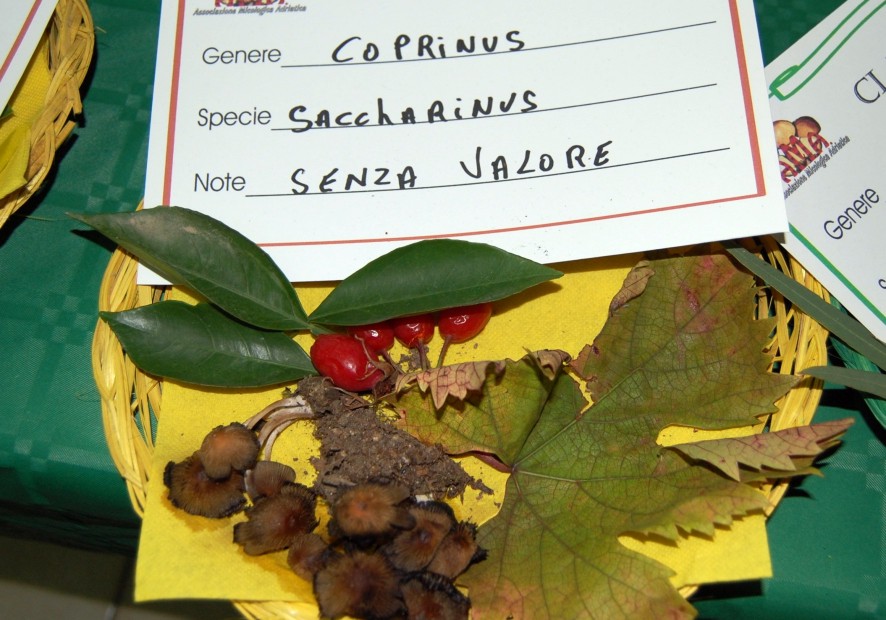 Associazione Micologica Adriatica
Genere COPRINUS
Specie SACCHARINUS
Note SENZA VALORE
CL
Associazione Micologica Adriatica
Genere